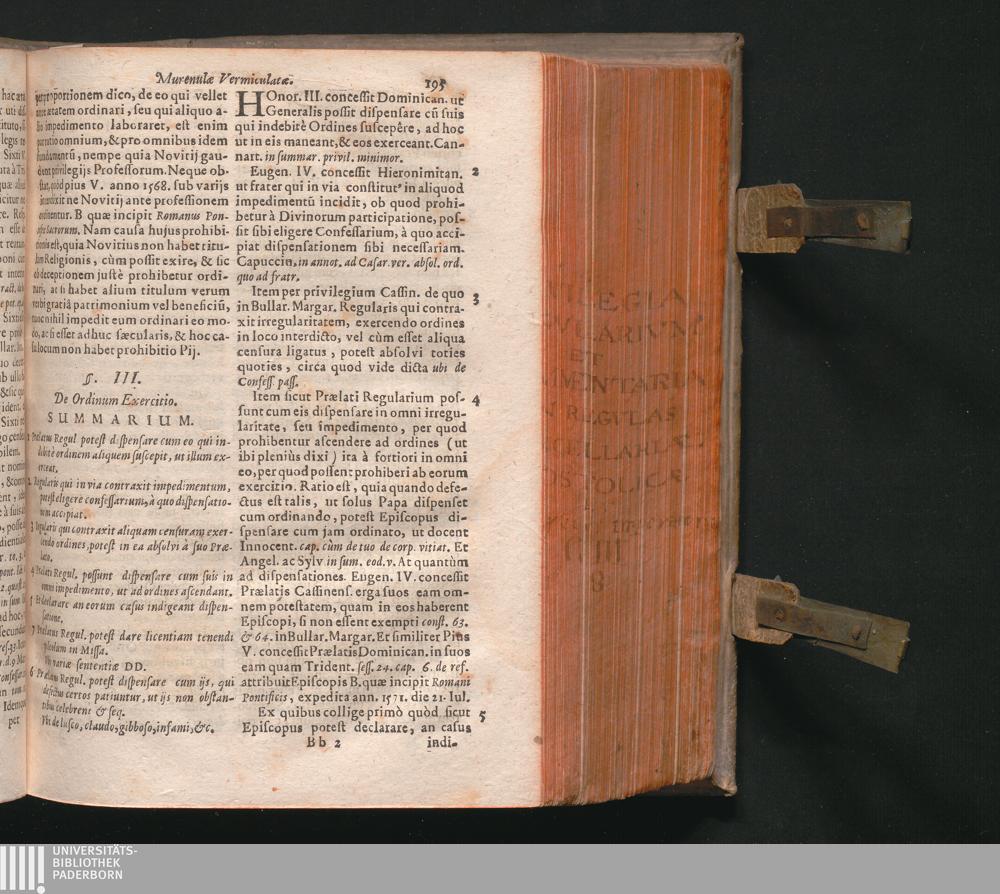 Murenulæ Vermiculatæ. 195
proportionem dico, de eo qui vellet
ætatem ordinari, seu qui aliquo a-
impedimento laboraret, est enim
ratio omnium, & pro omnibus idem
fundamentũ, nempe quia Novitij gau-
dent privilegijs Professorum. Neque ob-
stat, quòd pius V. anno 1568. sub varijs
interdixit ne Novitij ante professionem
ordinentur. B quæ incipit Romanus Pon-
tifex sacrorum. Nam causa hujus prohibi-
tionis est, quia Novitius non habet titu-
lum Religionis, cùm possit exire, & sic
ob deceptionem justè prohibetur ordi-
nari, at si habet alium titulum verum
verbi gratiâ patrimonium vel beneficiũ,
tunc nihil impedit eum ordinari eo mo-
do, ac si esset adhuc sæcularis, & hoc ca-
su locum non habet prohibitio Pij.
§. III.
De Ordinum Exercitio.
SUMMARIUM.
1 Prælatus Regul. potest dispensare cum eo qui in-
debitè ordinem aliquem suscepit, ut illum ex-
erceat.
2 Regularis qui in via contraxit impedimentum,
potest eligere confessarium, à quo dispensatio-
nem accipiat.
3 Regularis qui contraxit aliquam censuram exer-
cendo ordines, potest in ea absolvi à suo Præ-
lato.
4 Prælati Regul. possunt dispensare cum suis in
omni impedimento, ut ad ordines ascendant.
5 Et declarare an eorum casus indigeant dispen-
satione.
7 Prælatus Regul. potest dare licentiam tenendi
pileolum in Missa.
Ubi variæ sententiæ DD.
6 Prælatus Regul. potest dispensare cum ijs, qui
defectus certos patiuntur, ut ijs non obstan-
tibus celebrent & seq.
Ubi de lusco, claudo, gibboso, infami, &c.
HOnor. III. concessit Dominican. ut
Generalis possit dispensare cũ suis
qui indebitè Ordines suscepêre, ad hoc
ut in eis maneant, & eos exerceant. Can-
nart. in summar. privil. minimor.
Eugen. IV. concessit Hieronimitan. 2
ut frater qui in via constitut' in aliquod
impedimentũ incidit, ob quod prohi-
betur à Divinorum participatione, pos-
sit sibi eligere Confessarium, à quo acci-
piat dispensationem sibi necessariam.
Capuccin. in annot. ad Casar. ver. absol. ord.
quo ad fratr.
Item per privilegium Cassin. de quo 3
in Bullar. Margar. Regularis qui contra-
xit irregularitatem, exercendo ordines
in loco interdicto, vel cùm esset aliqua
censura ligatus, potest absolvi toties
quoties, circa quod vide dicta ubi de
Confess pass.
Item sicut Prælati Regularium pos- 4
sunt cum eis dispensare in omni irregu-
laritate, seu impedimento, per quod
prohibentur ascendere ad ordines (ut
ibi pleniùs dixi) ita à fortiori in omni
eo, per quod possent prohiberi ab eorum
exercitio. Ratio est, quia quando defe-
ctus est talis, ut solus Papa dispenset
cum ordinando, potest Episcopus di-
spensare cum jam ordinato, ut docent
Innocent. cap. cùm de tuo de corp. vitiat. Et
Angel. ac Sylv in sum. eod. v. At quantùm
ad dispensationes. Eugen. IV. concessit
Prælatis Cassinens. erga suos eam om-
nem potestatem, quam in eos haberent
Episcopi, si non essent exempti const. 63.
& 64. in Bullar. Margar. Et similiter Pius
V. concessit Prælatis Dominican. in suos
eam quam Trident. sess. 24. cap. 6. de ref.
attribuit Episcopis B. quæ incipit Romani
Pontificis, expedita ann. 1571. die 21. Iul.
Ex quibus collige primò quòd sicut 5
Episcopus potest declarare, an casus
Bb 2 indi-
ET
REGVLAS
8
UNIVERSITÄTS-
BIBLIOTHEK
PADERBORN